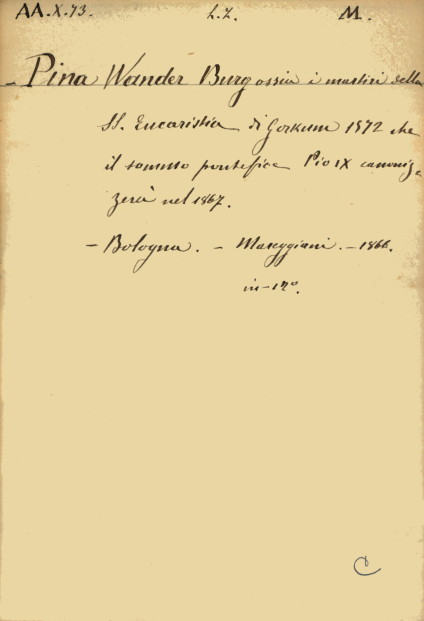 AA.X.73. L.Z. M.
- Pina Wander Burg ossia i martiri della
SS. Eucaristia di Gorkum 1572 che
il sommo pontefice Pio IX canoniz-
zerà nel 1867.
- Bologna. - Mareggiani. - 1866.
in-12º.
C